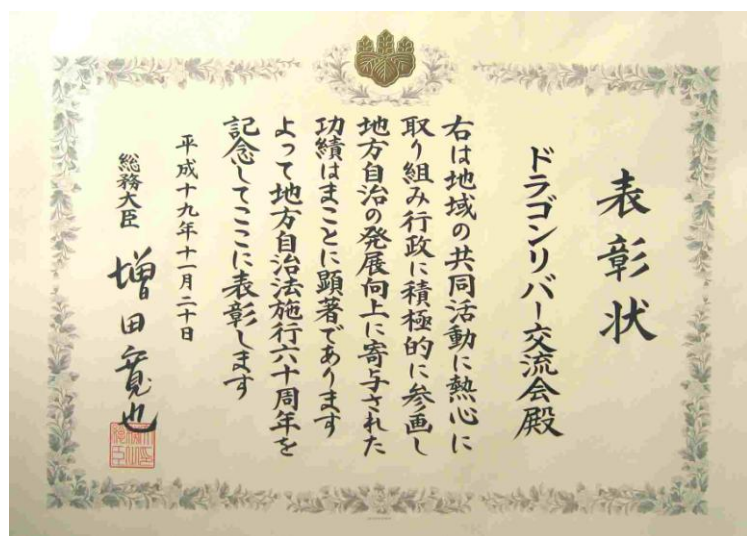 表彰状
ドラゴンリバー交流会殿
右は地域の共同活動に熱心に
取り組み行政に積極的に参画し
地方自治の発展向上に寄与された
功績はまことに顕著であります
よって地方自治法施行六十周年を
記念してここに表彰します
平成十九年十一月二十日
総務大臣 増田寛也